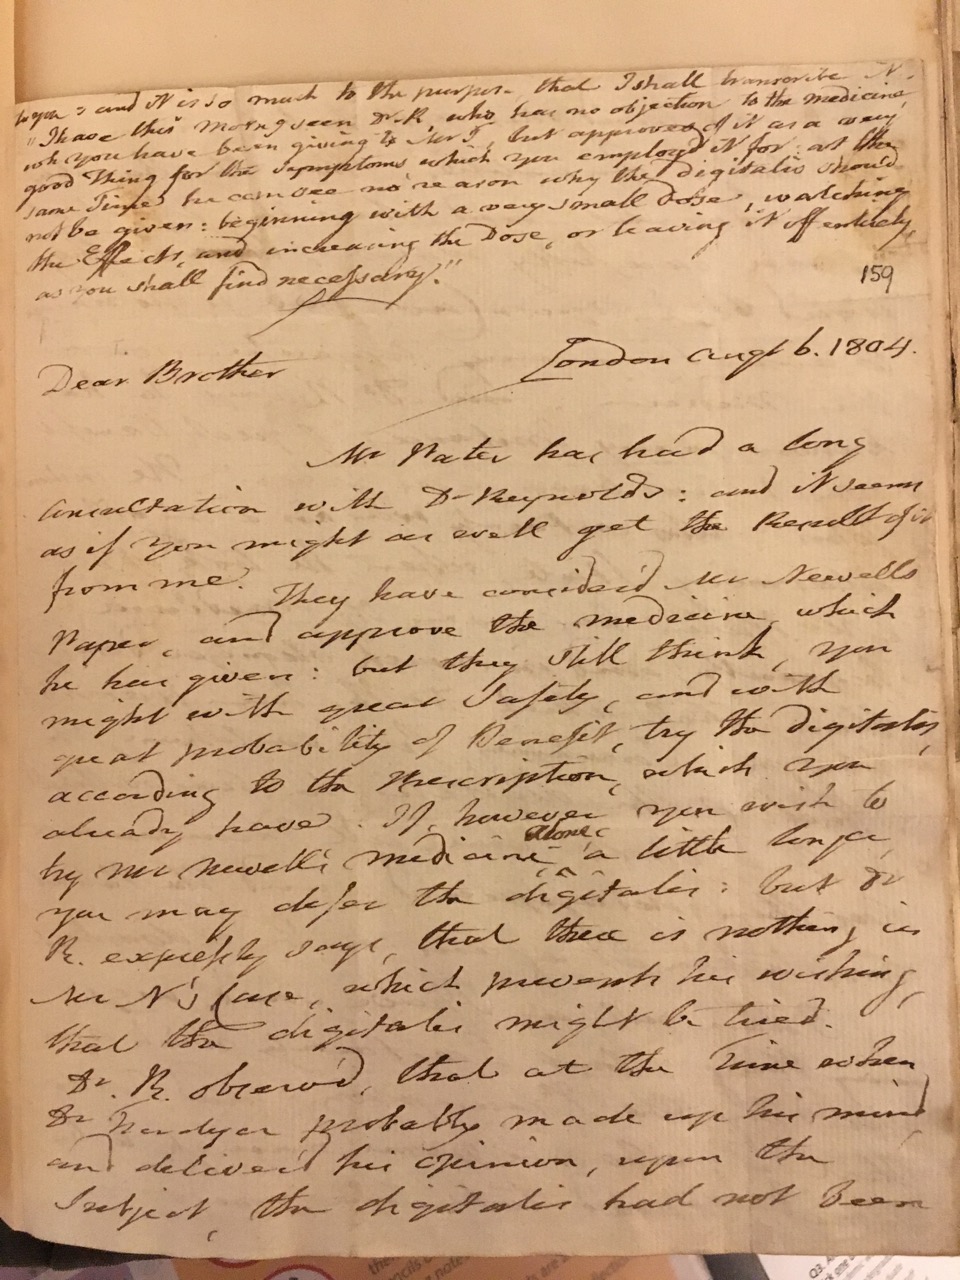 to you : and it is so much to the purpose that I shall transcribe it.
"I have this morng seen Dr R who has no objection to the medicine,
wh you have been giving to Mr T, but approves of it as a very
good Thing for the Symptoms which you employ'd it for : at the
same Time he can see no reason why the digitalis should
not be given : beginning with a very small Dose, watching
the Effects, and increasing the Dose, or leaving it off entirely,
as you shall find necessary."
159
London Augt 6. 1804.
Dear Brother
Mr Vater has had a long
Consultation with Dr Reynolds : and it seems
as if you might as well get the Result of it
from me. They have consider'd Mr Newells
Paper, and approve the medicine, which
he has given : but they still think, you
might with great Safety, and with
great probability of Benefit, try the digitalis,
according to the Prescription, which you
already have. If, however, you wish to
try Mr Newell's medicine alone, a little longer,
you may defer the digitalis : but Dr
R. expressly says, that there is nothing in
Mr N's Case, which prevents his wishing,
that the digitalis might be tried.
Dr. R. observ'd, that at the Time when
Dr probably made up his mind,
and deliver'd his opinion, upon the
Subject, the digitalis had not been